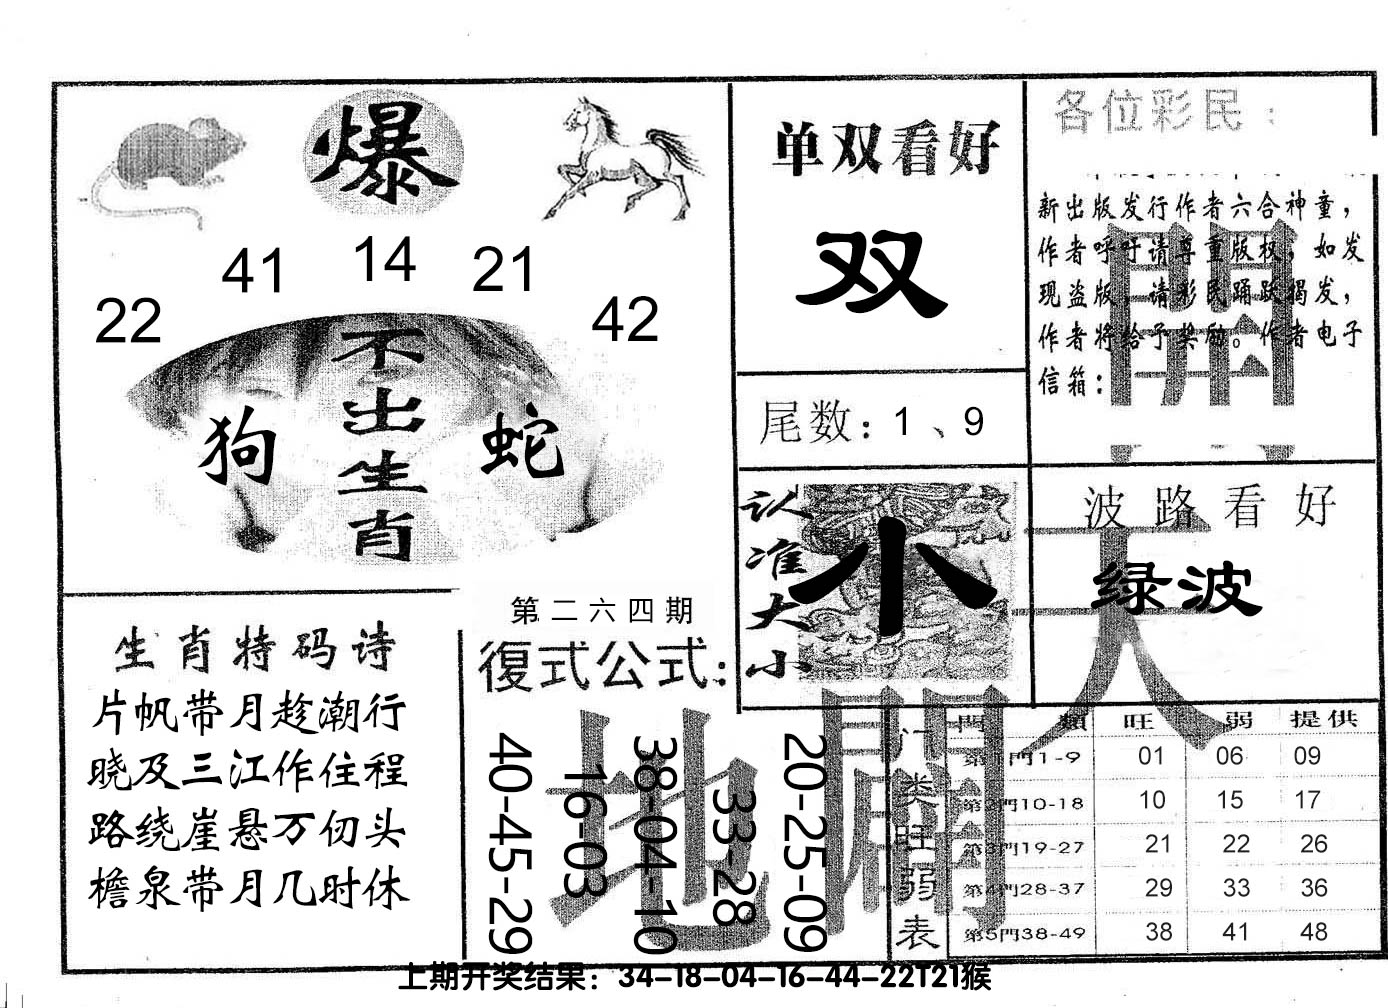 爆
22
41
14
21
42
不出生肖
狗
蛇
单双看好
双
尾数：1、9
各位彩民：
新出版发行作者六合神童，
作者呼吁请尊重版权，如发
现盗版，请彩民踊跃揭发，
作者将给予奖励。作者电子
信箱：
認准大小
小
波路看好
绿波
天
開
地
闢
生肖特码诗
片帆带月趁潮行
晓及三江作住程
路绕崖悬万仞头
檐泉带月几时休
第二六四期
復式公式：
40-45-29
16-03
38-04-10
33-28
20-25-09
门类旺弱表
門 類 旺 弱 提供
第1門1-9 01 06 09
第2門10-18 10 15 17
第3門19-27 21 22 26
第4門28-37 29 33 36
第5門38-49 38 41 48
上期开奖结果：34-18-04-16-44-22T21猴